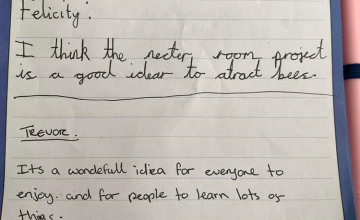 Felicity:
I think the necter room project
is a good idear to atract bees.
TREVOR.
Its a wondefull idiea for everyone to
enjoy. and for people to learn lots of
things.